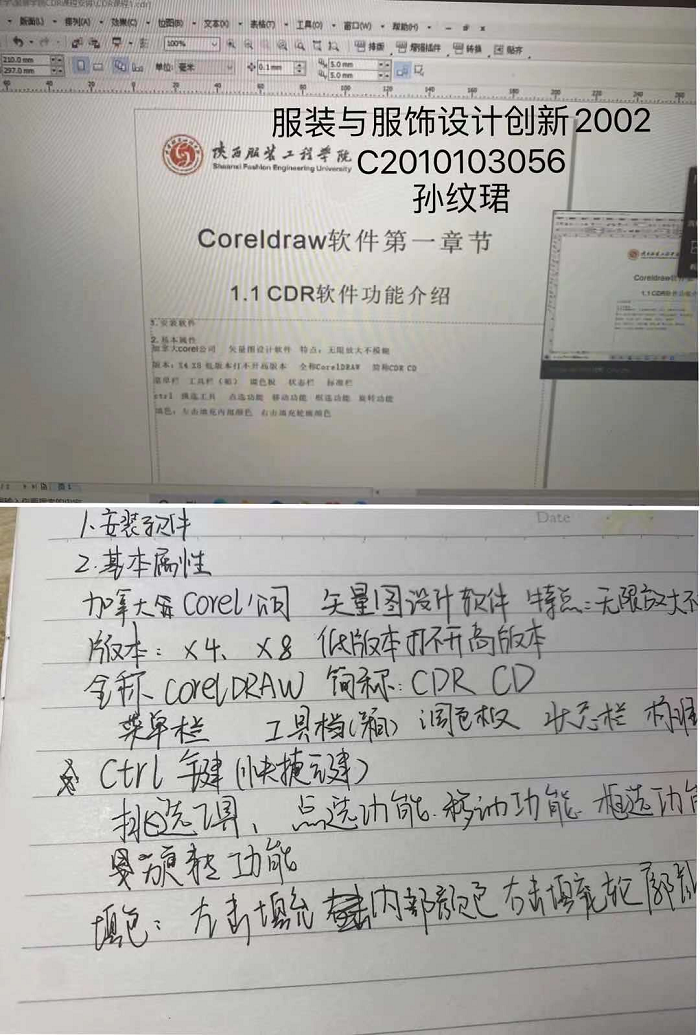 版面(L) 排列(A) 效果(C) 位图(B) 文本(X) 表格(T) 工具(O) 窗口(W) 帮助(H)
100%
排版 增强插件 转换 贴齐
210.0 mm
297.0 mm
单位: 毫米
0.1 mm
5.0 mm
5.0 mm
服装与服饰设计创新2002
C2010103056
孙纹珺
陕西服装工程学院
Shaanxi Fashion Engineering University
Coreldraw软件第一章节
1.1 CDR软件功能介绍
1.安装软件
2.基本属性
加拿大corel公司 矢量图设计软件 特点：无限放大不模糊
版本：X4 X8 低版本打不开高版本 全称CorelDRAW 简称CDR CD
菜单栏 工具栏（箱） 调色板 状态栏 标准栏
ctrl 挑选工具 点选功能 移动功能 框选功能 旋转功能
填色：左击填充内部颜色 右击填充轮廓颜色
页 1
Date
1.安装软件
2.基本属性
加拿大 Corel公司 矢量图设计软件 特点:无限放大不
版本：X4、X8 低版本打不开高版本
全称、CorelDRAW 简称：CDR CD
菜单栏 工具档(箱) 调色板 状态栏 标准
Ctrl 键(快捷键)
挑选工具、点选功能.移动功能.框选功能
旋转功能
填色：左击填充内部颜色 右击填充轮廓颜